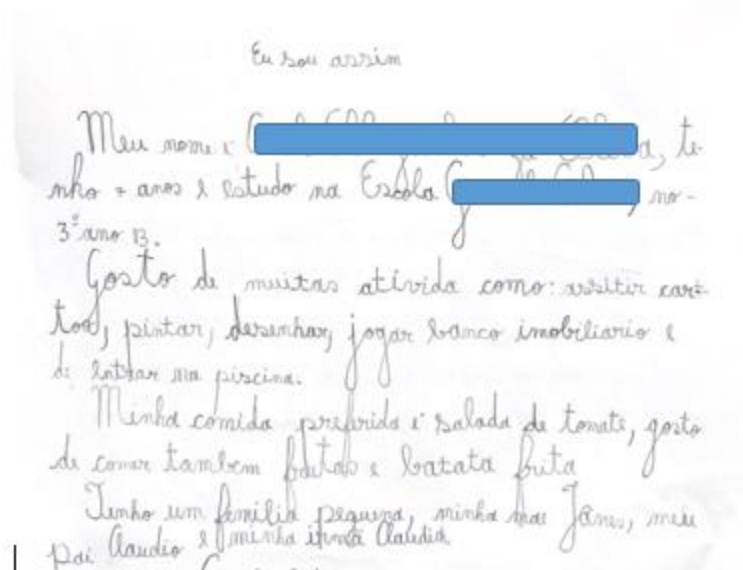 Eu sou assim
Meu nome e a, te-
nho 7 anos e estudo na Escola no-
3º ano B.
Gosto de muitas ativida como: assitir car-
too, pintar, desenhar, jogar banco imobiliario e
de entrar na piscina.
Minha comida preferida e salada de tomate, gosto
de comer tambem frutas e batata frita
Tenho um familia pequena, minha mae Janes, meu
pai Claudio e minha irmã Claudia